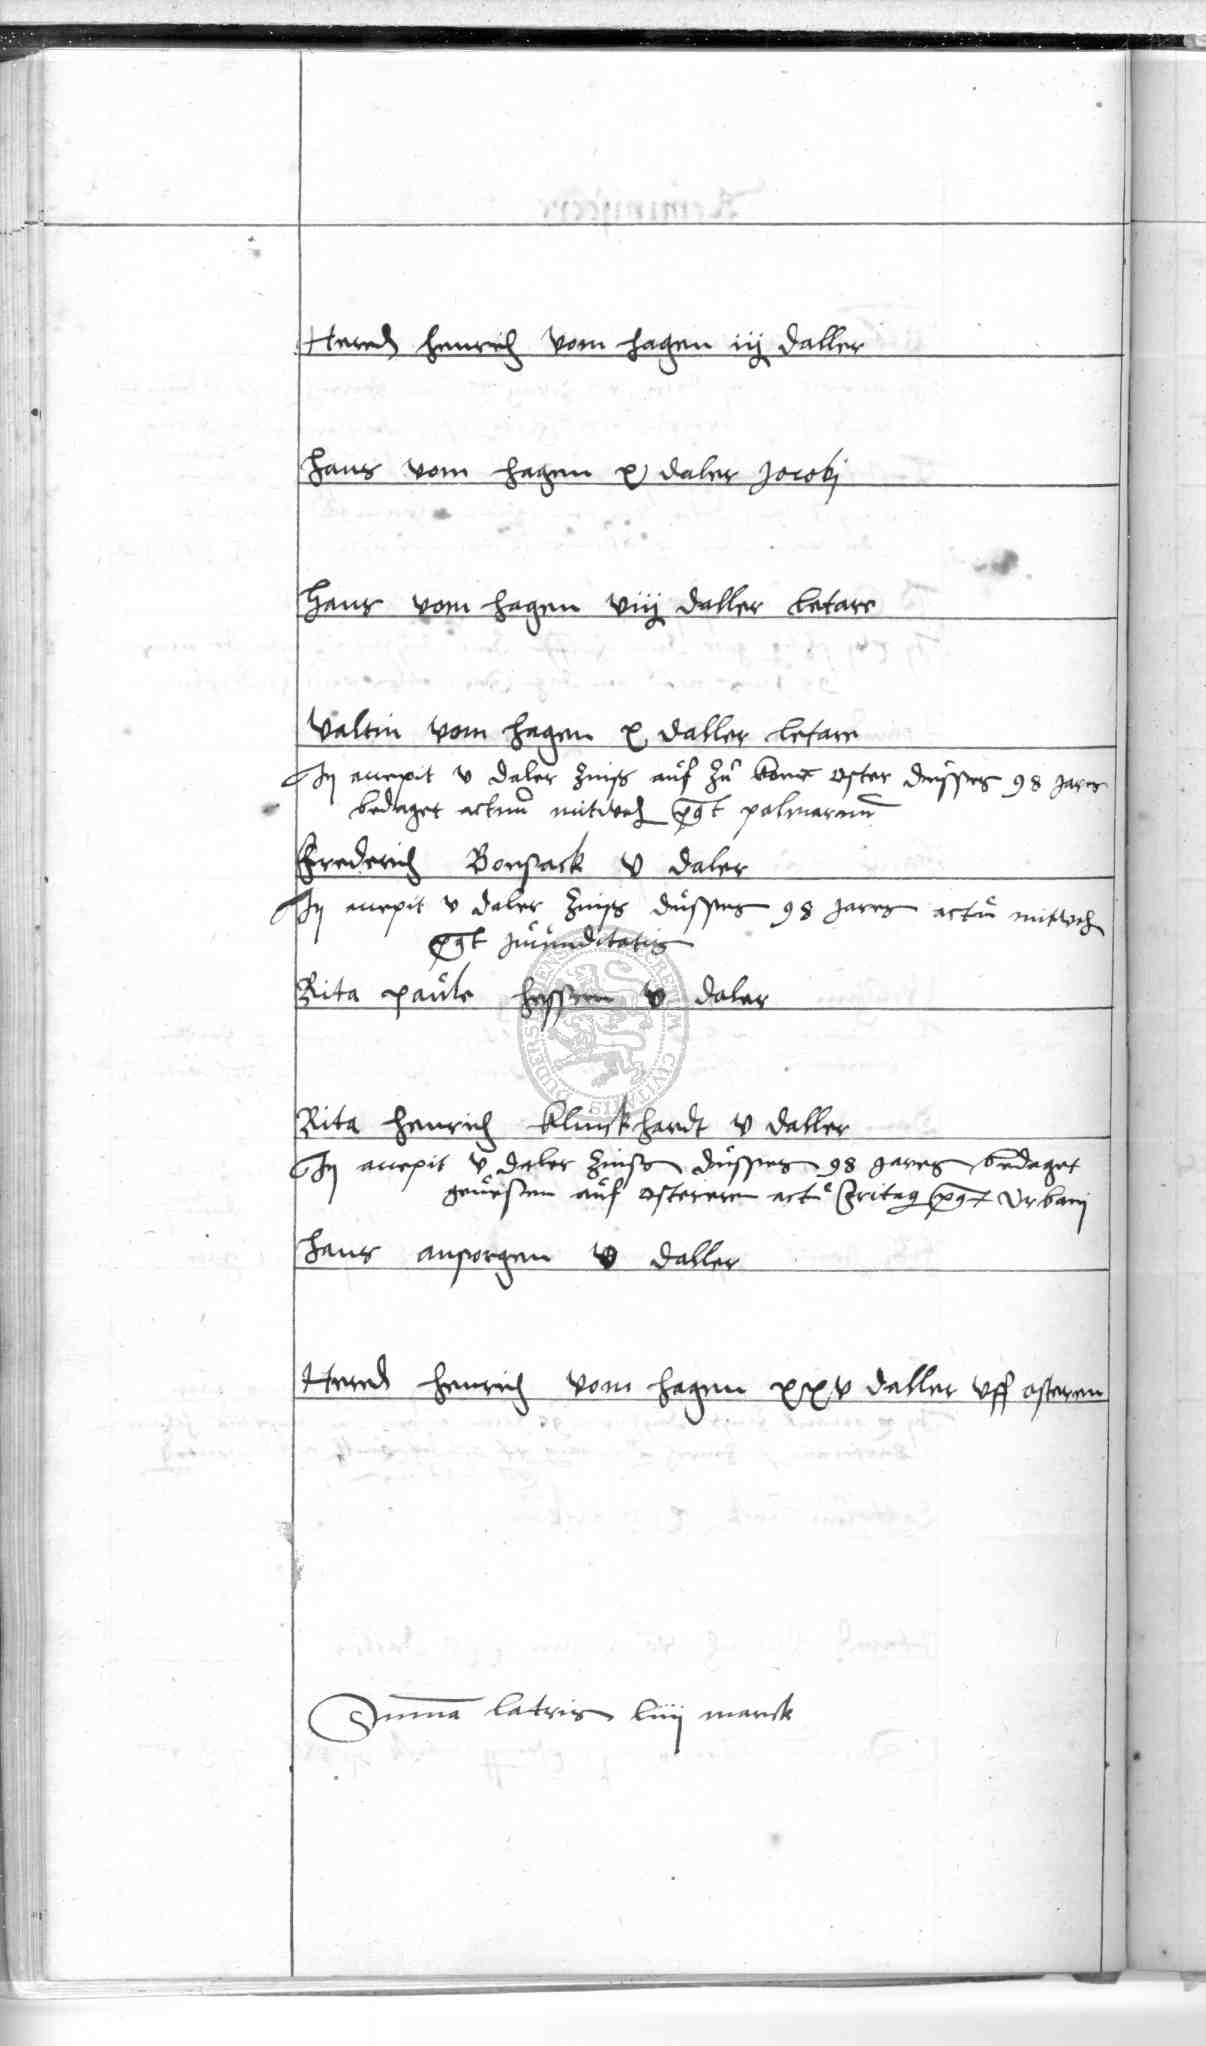 Hered henrich vom hagen iij daller
hans vom hagen x daler Jocobj
Hans vom hagen viij daller letare
Valtin vom hagen x daller letare
accepit v daler Zinß auf Zu oster dusses 98 Jares
bedaget actum mitwch post palmarum
Frederich Bonsack v daler
accepit v daler Zinß dusses 98 Jares actu mitwch
post Jucunditatis
Rita paule hessen v daler
Rita henrich Klinckhardt v daller
accepit v daler Zinß dusses 98 Jares bedaget
auf osteren actu Fritag post Urbani
hans ansorgen v daller
Hered henrich vom hagen xxv daller uff osteren
Summa latris liiij marck